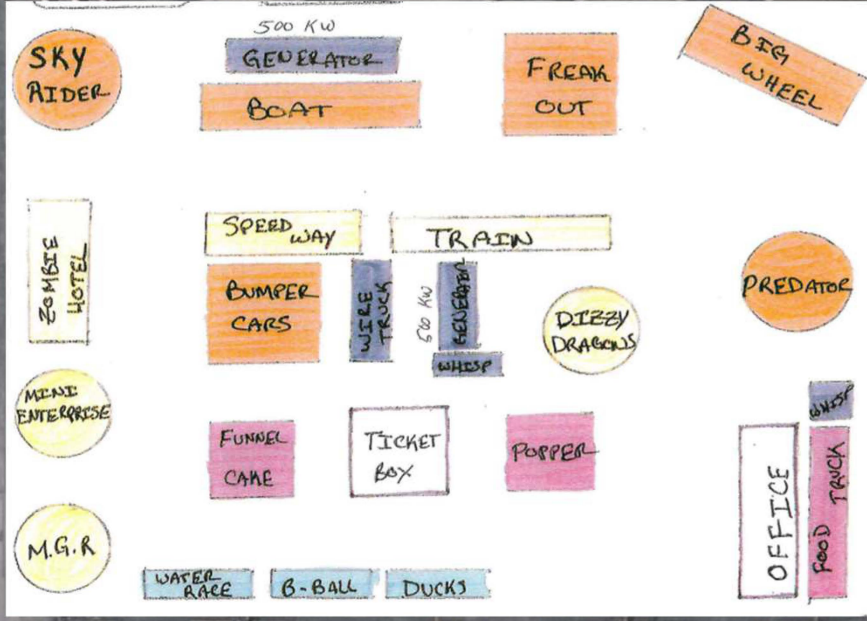 500 KW
SKY
RIDER
GENERATOR
BOAT
FREAK
OUT
BIG
WHEEL
ZOMBIE
HOTEL
SPEED
WAY
TRAIN
BUMPER
CARS
WIRE
TRUCK
500 KW
GENERATOR
WHISP
DIZZY
DRAGONS
PREDATOR
MINI
ENTERPRISE
FUNNEL
CAKE
TICKET
BOX
POPPER
WHISP
OFFICE
FOOD TRUCK
M.G.R
WATER
RACE
B-BALL
DUCKS